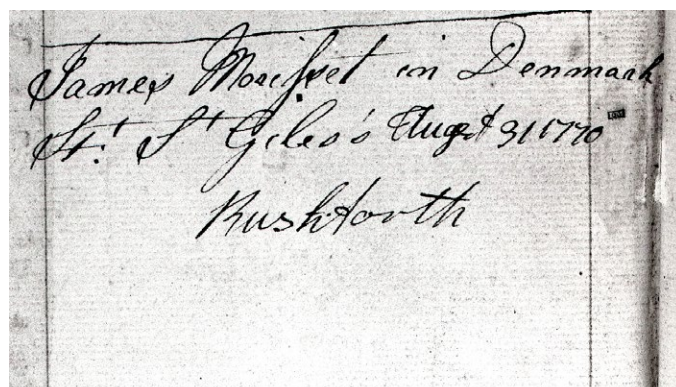 James Morisset in Denmark
St. St Giles's Augst 31 1770
Rushforth